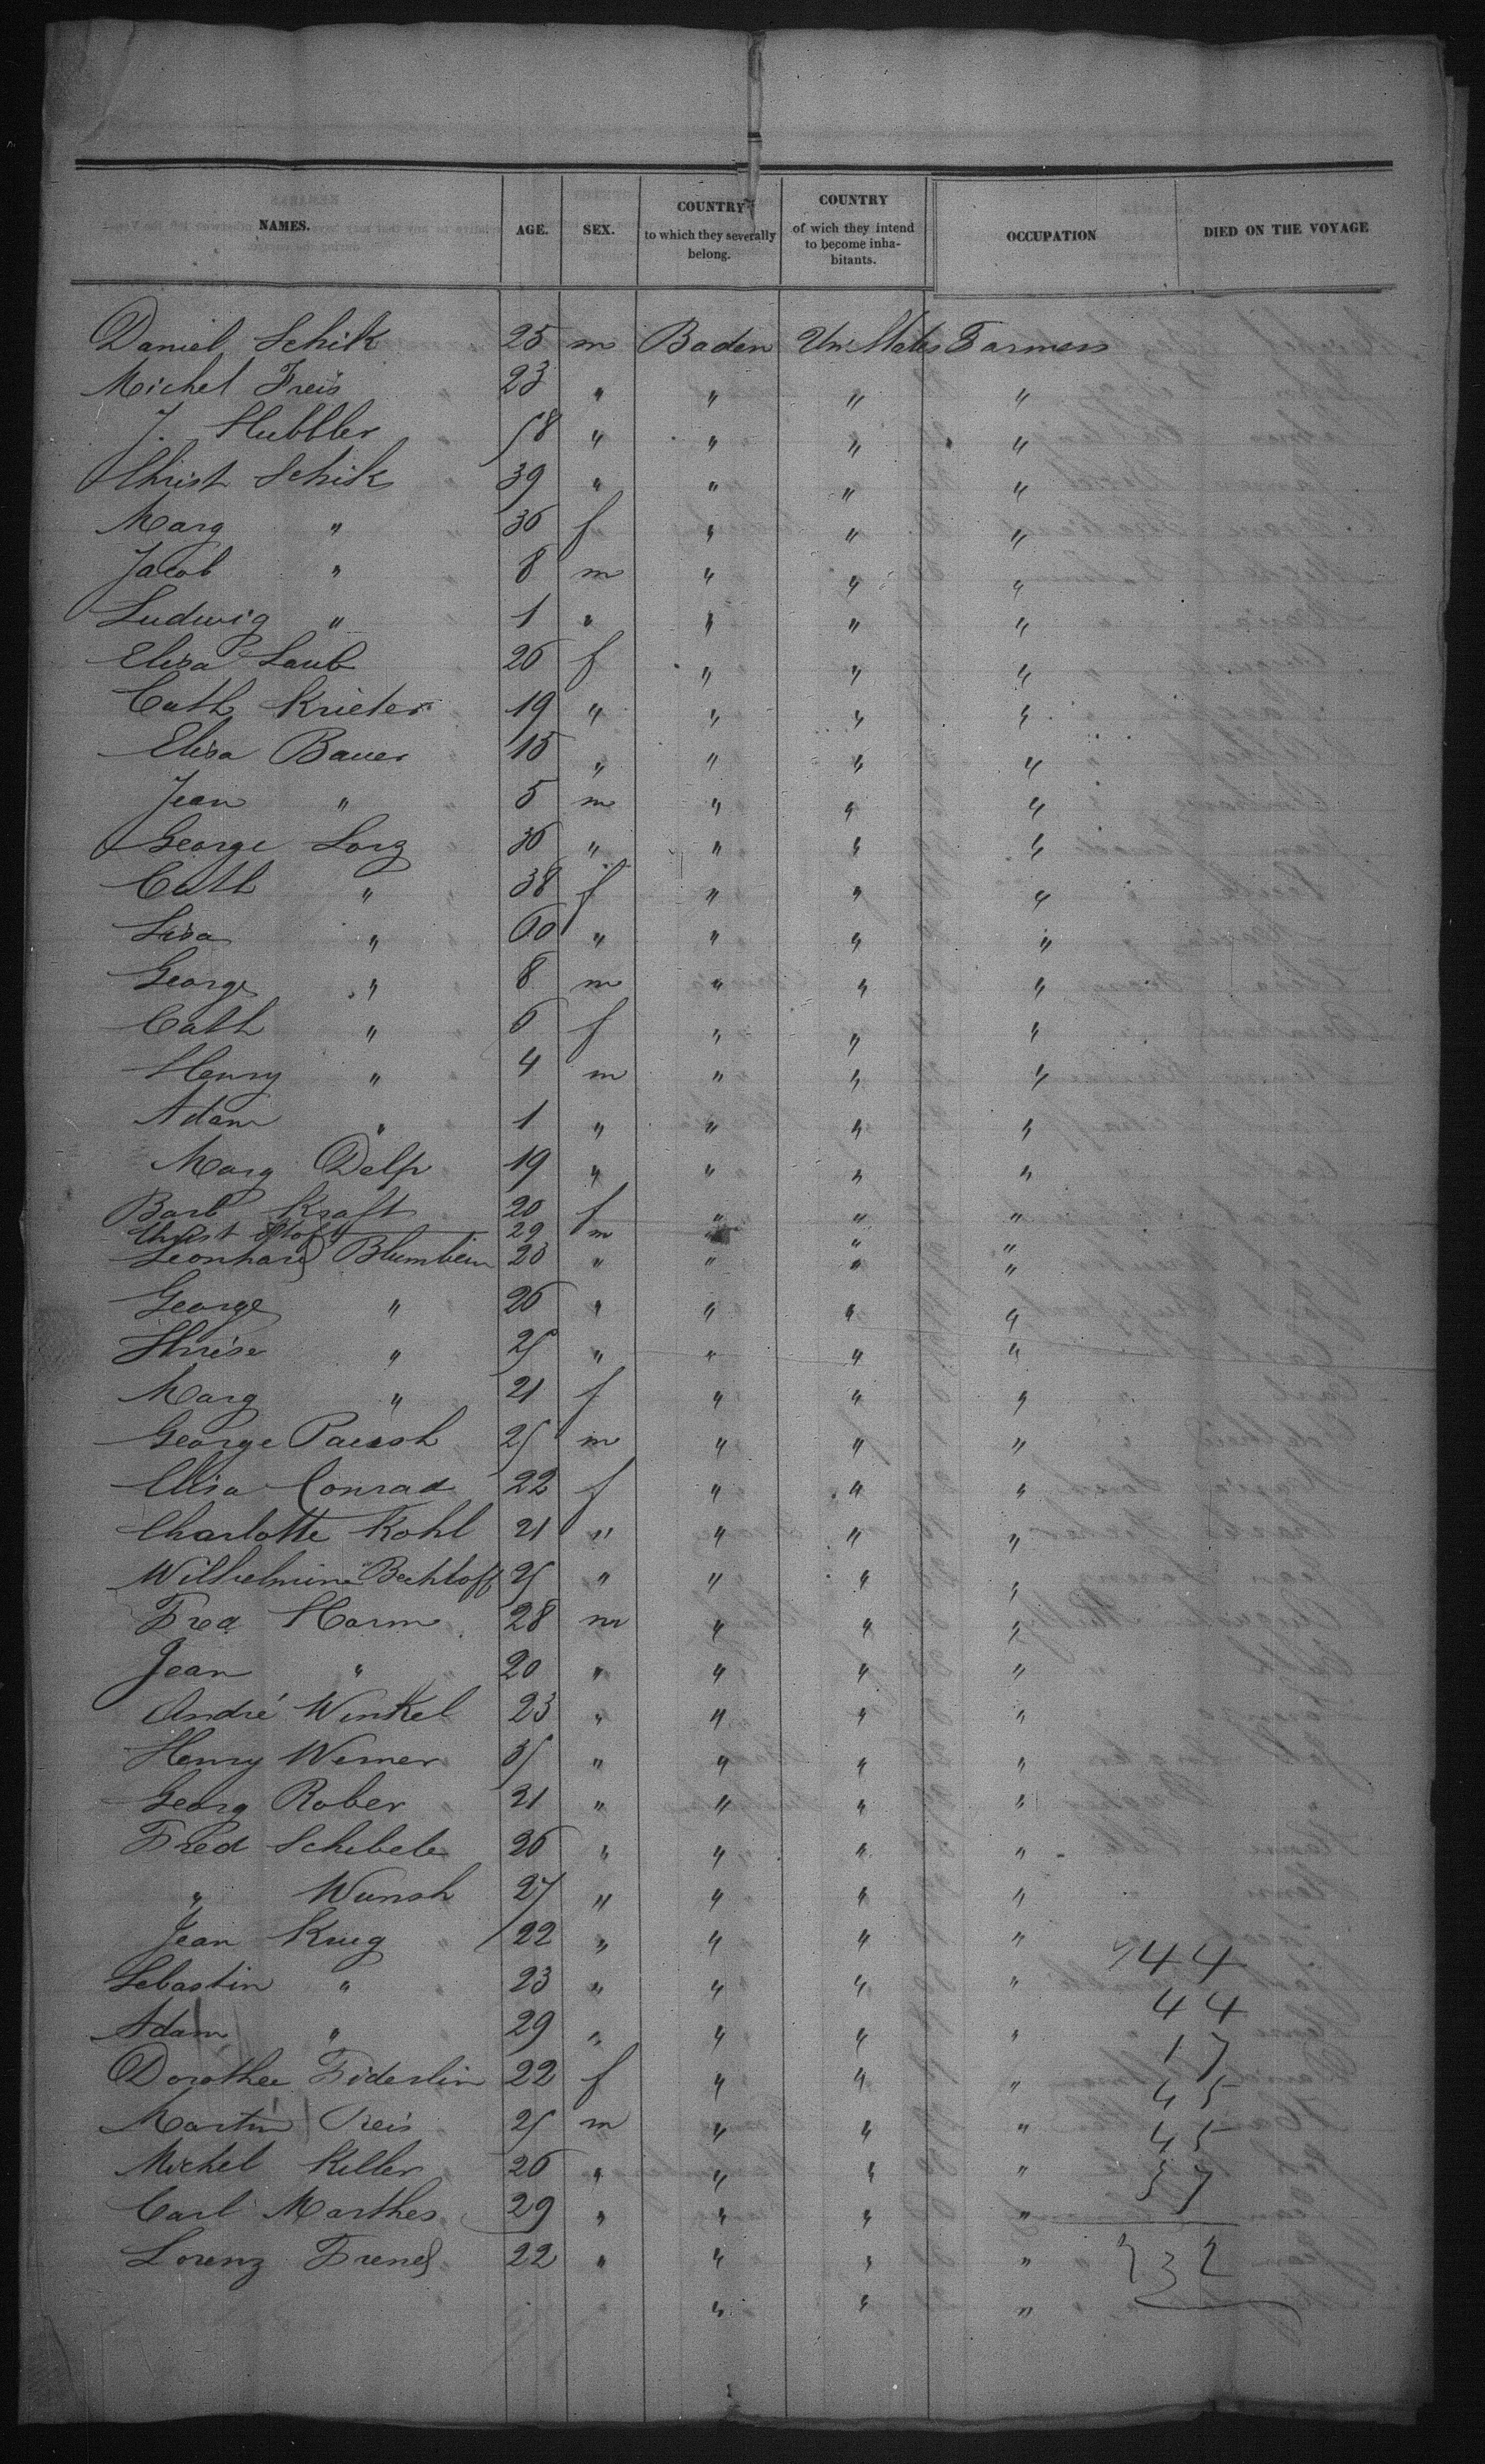 NAMES. AGE. SEX. COUNTRY to which they severally belong. COUNTRY of wich they intend to become inhabitants. OCCUPATION DIED ON THE VOYAGE
Daniel Schik 25 m Baden Un. States Farmers
Michel Freis 23 " " " "
J. Hubbler 58 " " " "
Christ Schik 39 " " " "
Marg " 36 f " " "
Jacob " 8 m " " "
Ludwig " 1 " " " "
Elisa Laub 26 f " " "
Cath Krieter 19 " " " "
Elisa Bauer 15 " " " "
Jean " 5 m " " "
George Lorz 36 " " " "
Cath " 38 f " " "
Lisa " 60 " " " "
George " 8 m " " "
Cath " 6 f " " "
Henry " 4 m " " "
Adam " 1 " " " "
Marg Delp 19 " " " "
Barb Kraft 20 f " " "
Christ 29 m " " "
Leonhard Blumbein 23 " " " "
George " 26 " " " "
" 25 " " " "
Marg " 21 f " " "
George 25 m " " "
Elisa Conrad 22 f " " "
Charlotte Kohl 21 " " " "
Wilhelmine Bechtoff 25 " " " "
Fred Horm 28 m " " "
Jean " 20 " " " "
André Winkel 23 " " " "
Henry Werner 35 " " " "
Georg Rober 21 " " " "
Fred Schebele 26 " " " "
" Wunsh 27 " " " "
Jean Krug 22 " " " "
Sebastin " 23 " " " "
44
Adam " 29 " " " "
44
17
Dorothee Fiderlin 22 f " " "
45
Martin Reis 25 m " " "
45
Michel Keller 26 " " " "
37
Carl Marthes 29 " " " "
Lorenz 22 " " " "
232
" " "